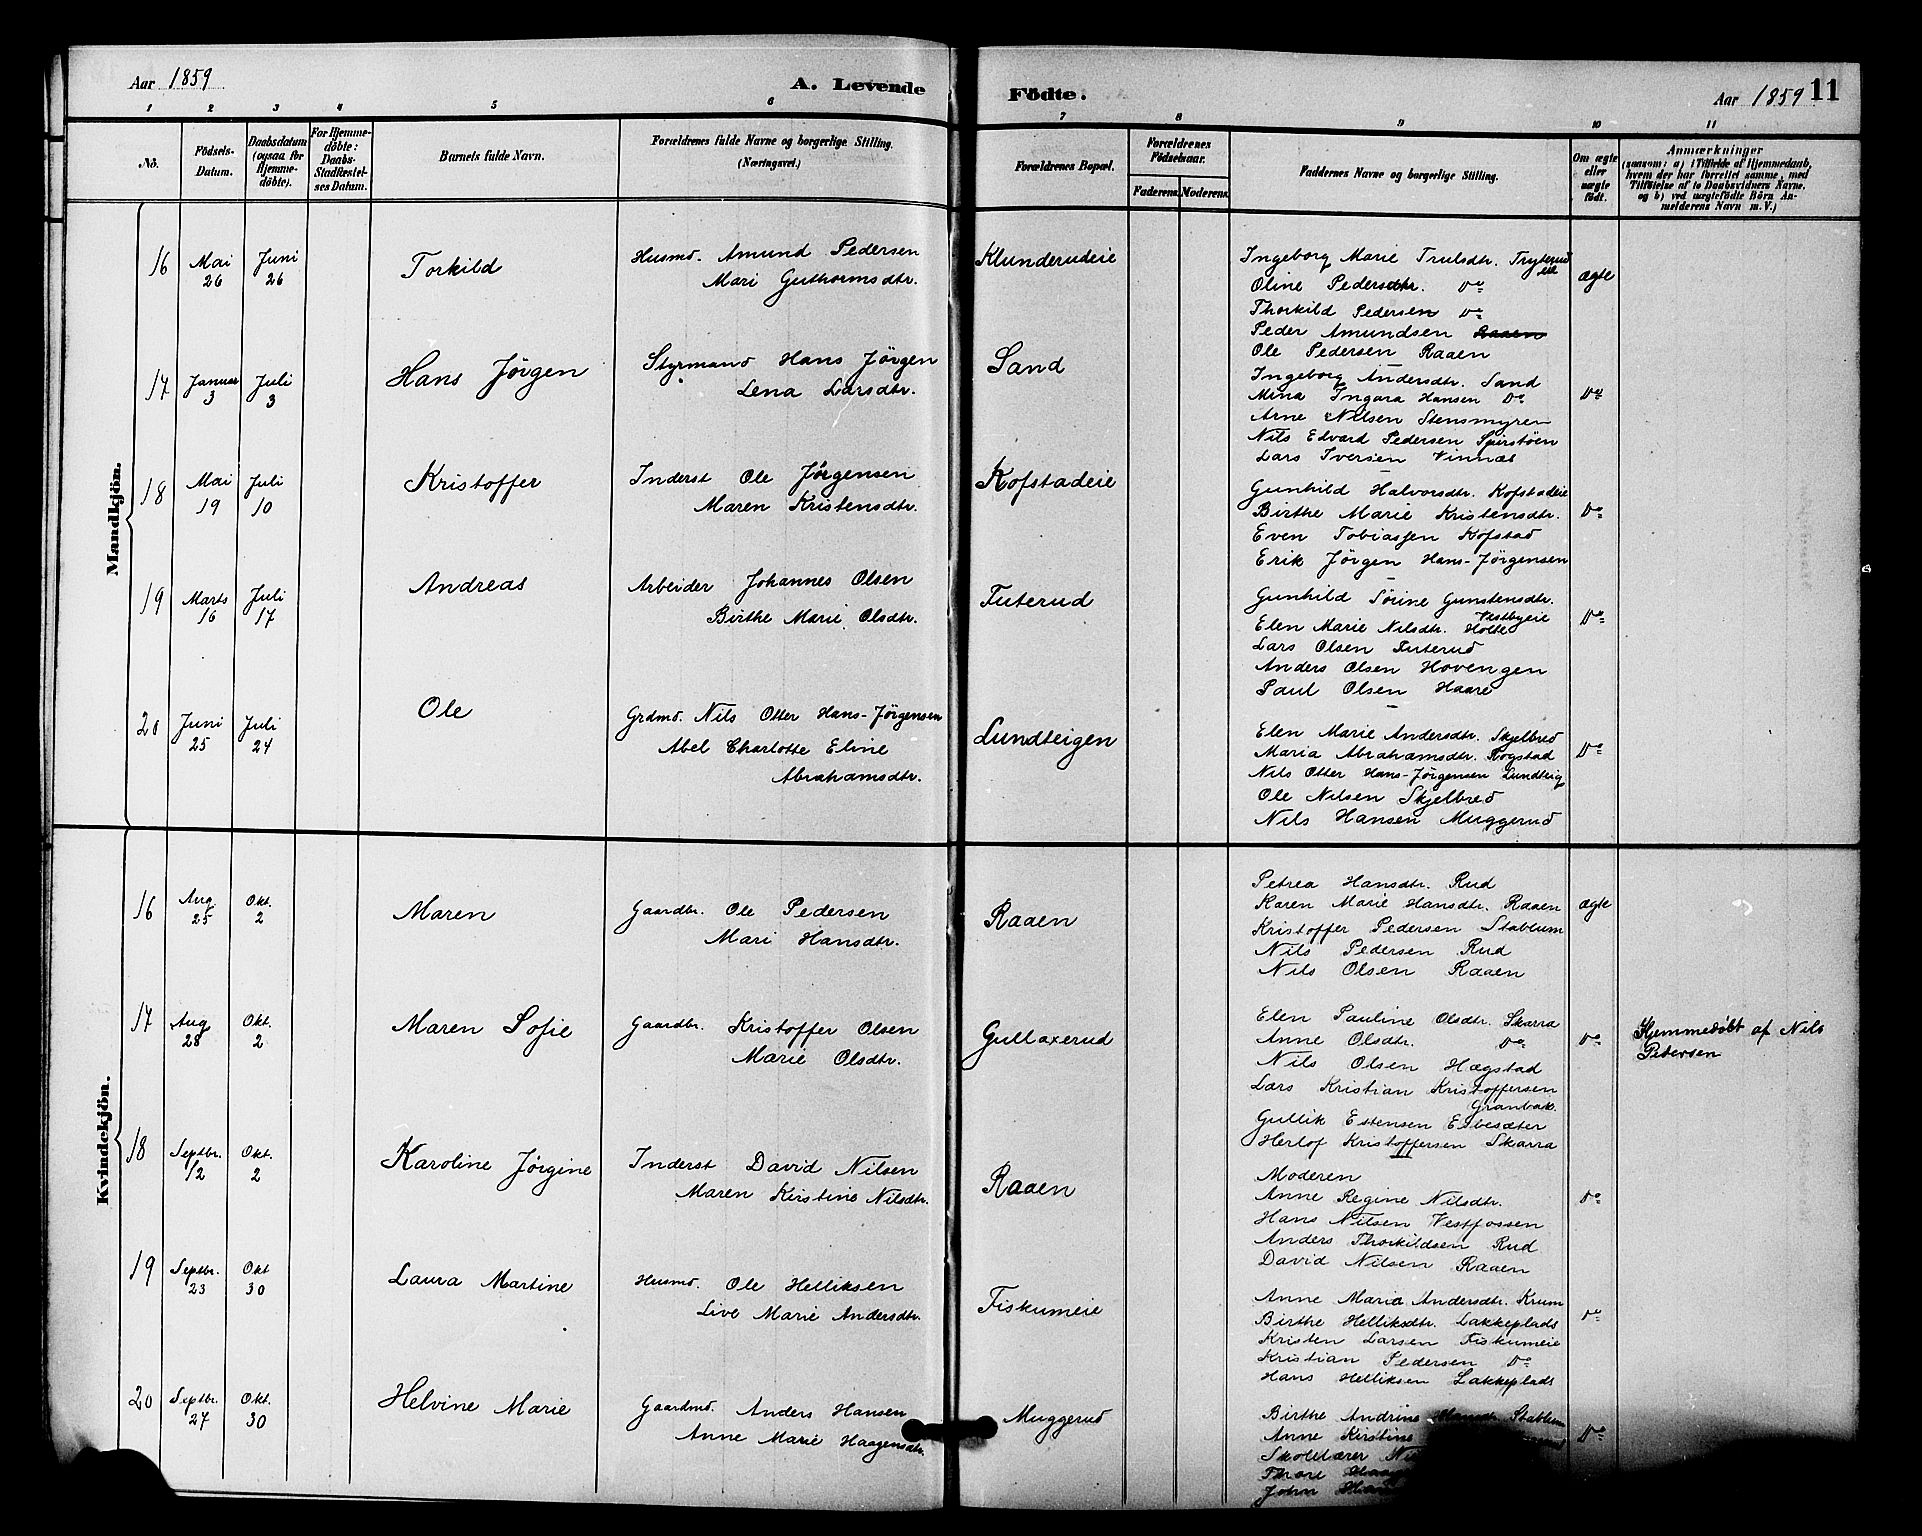 Aar 1859
A. Levende
Födte.
Aar 1859 11
1 2 3 4 5 6 7 8 9 10 11
No.
Födsels-
Datum.
Daabsdatum
(ogsaa for
Hjemme-
döbte).
For Hjemme-
döbte:
Daabs-
Stadfæstel-
ses Datum.
Barnets fulde Navn.
Forældrenes fulde Navne og borgerlige Stilling.
(Næringsvei.)
Forældrenes Bopæl.
Forældrenes
Födselsaar.
Faderens. Moderens.
Faddernes Navne og borgerlige Stilling.
Om ægte
eller
uægte
födt.
Anmærkninger
(saasom: a) i Tilfælde af Hjemmedaab,
hvem der har forrettet samme, med
Tilföielse af to Daabsvidners Navne,
og b) ved uægtefödte Börn An-
melderens Navn m. V.)
Mandkjön.
16 Mai 26 Juni 26 Torkild
Husmd. Amund Pedersen
Mari Guthormsdtr.
Klunderudeie
Ingeborg Marie Trulsdtr. Tryterud
eie
Oline Pedersdtr. Do
Thorkild Pedersen Do
Peder Amundsen Raaen
Ole Pedersen Raaen
ægte
17 Januar 3 Juli 3 Hans Jörgen
Styrmand Hans Jörgen
Lena Larsdtr.
Sand
Ingeborg Andersdtr. Sand
Mina Ingara Hansen Do
Arne Nilsen Stensmyren
Nils Edvard Pedersen Spirstöen
Lars Iversen Vinnæs
Do
18 Mai 19 Juli 10 Kristoffer
Inderst Ole Jörgensen
Maren Kristensdtr.
Kofstadeie
Gunhild Halvorsdtr. Kofstadeie
Birthe Marie Kristensdtr.
Even Tobiassen Kofstad
Erik Jörgen Hans-Jörgensen
Do
19 Marts 16 Juli 17 Andreas
Arbeider Johannes Olsen
Birthe Marie Olsdtr.
Futerud
Gunhild Sörine Gunstensdtr.
Vestbyeie
Elen Marie Nilsdtr. Holte
Lars Olsen Futerud
Anders Olsen Hovengen
Paul Olsen Haare
Do
20 Juni 25 Juli 24 Ole
Grdmd. Nils Otter Hans-Jörgensen
Abel Charlotte Eline
Abrahamsdtr.
Lundteigen
Elen Marie Andersdtr. Skjelbred
Maria Abrahamsdtr. Fogstad
Nils Otter Hans-Jörgensen Lundteig
Ole Nilsen Skjelbred
Nils Hansen Muggerud
Do
Kvindekjön.
16 Aug. 25 Okt. 2 Maren
Gaardbr. Ole Pedersen
Mari Hansdtr.
Raaen
Petrea Hansdtr. Rud
Karen Marie Hansdtr. Raaen
Kristoffer Pedersen Stablum
Nils Pedersen Rud
Nils Olsen Raaen
ægte
17 Aug 28 Okt. 2 Maren Sofie
Gaardbr. Kristoffer Olsen
Marie Olsdtr.
Gullaxerud
Elen Pauline Olsdtr. Skarra
Anne Olsdtr. Do
Nils Olsen Hægstad
Lars Kristian Kristoffersen
Granbak.
Gullik Estensen Esbesæter
Herlof Kristoffersen Skarra
Do
Hjemmedöbt af Nils
Pedersen
18 Septbr. 12 Okt. 2 Karoline Jörgine
Inderst David Nilsen
Maren Kirstine Nilsdtr.
Raaen
Moderen
Anne Regine Nilsdtr.
Hans Nilsen Vestfossen
Anders Thorkildsen Rud
David Nilsen Raaen
Do
19 Septbr. 23 Okt 30 Laura Martine
Husmd. Ole Helliksen
Live Marie Andersdtr.
Fiskumeie
Anne Maria Andersdtr. Krum
Birthe Helliksdtr. Lakkeplads
Kristen Larsen Fiskumeie
Kristian Pedersen Do
Hans Helliksen Lakkeplads
Do
20 Septbr. 27 Okt. 30 Helvine Marie
Gaardmd. Anders Hansen
Anne Marie Haagensdtr.
Muggerud
Birthe Andrine Stablum
Anne Kirstine
Skolelærer
Thore
John
Do